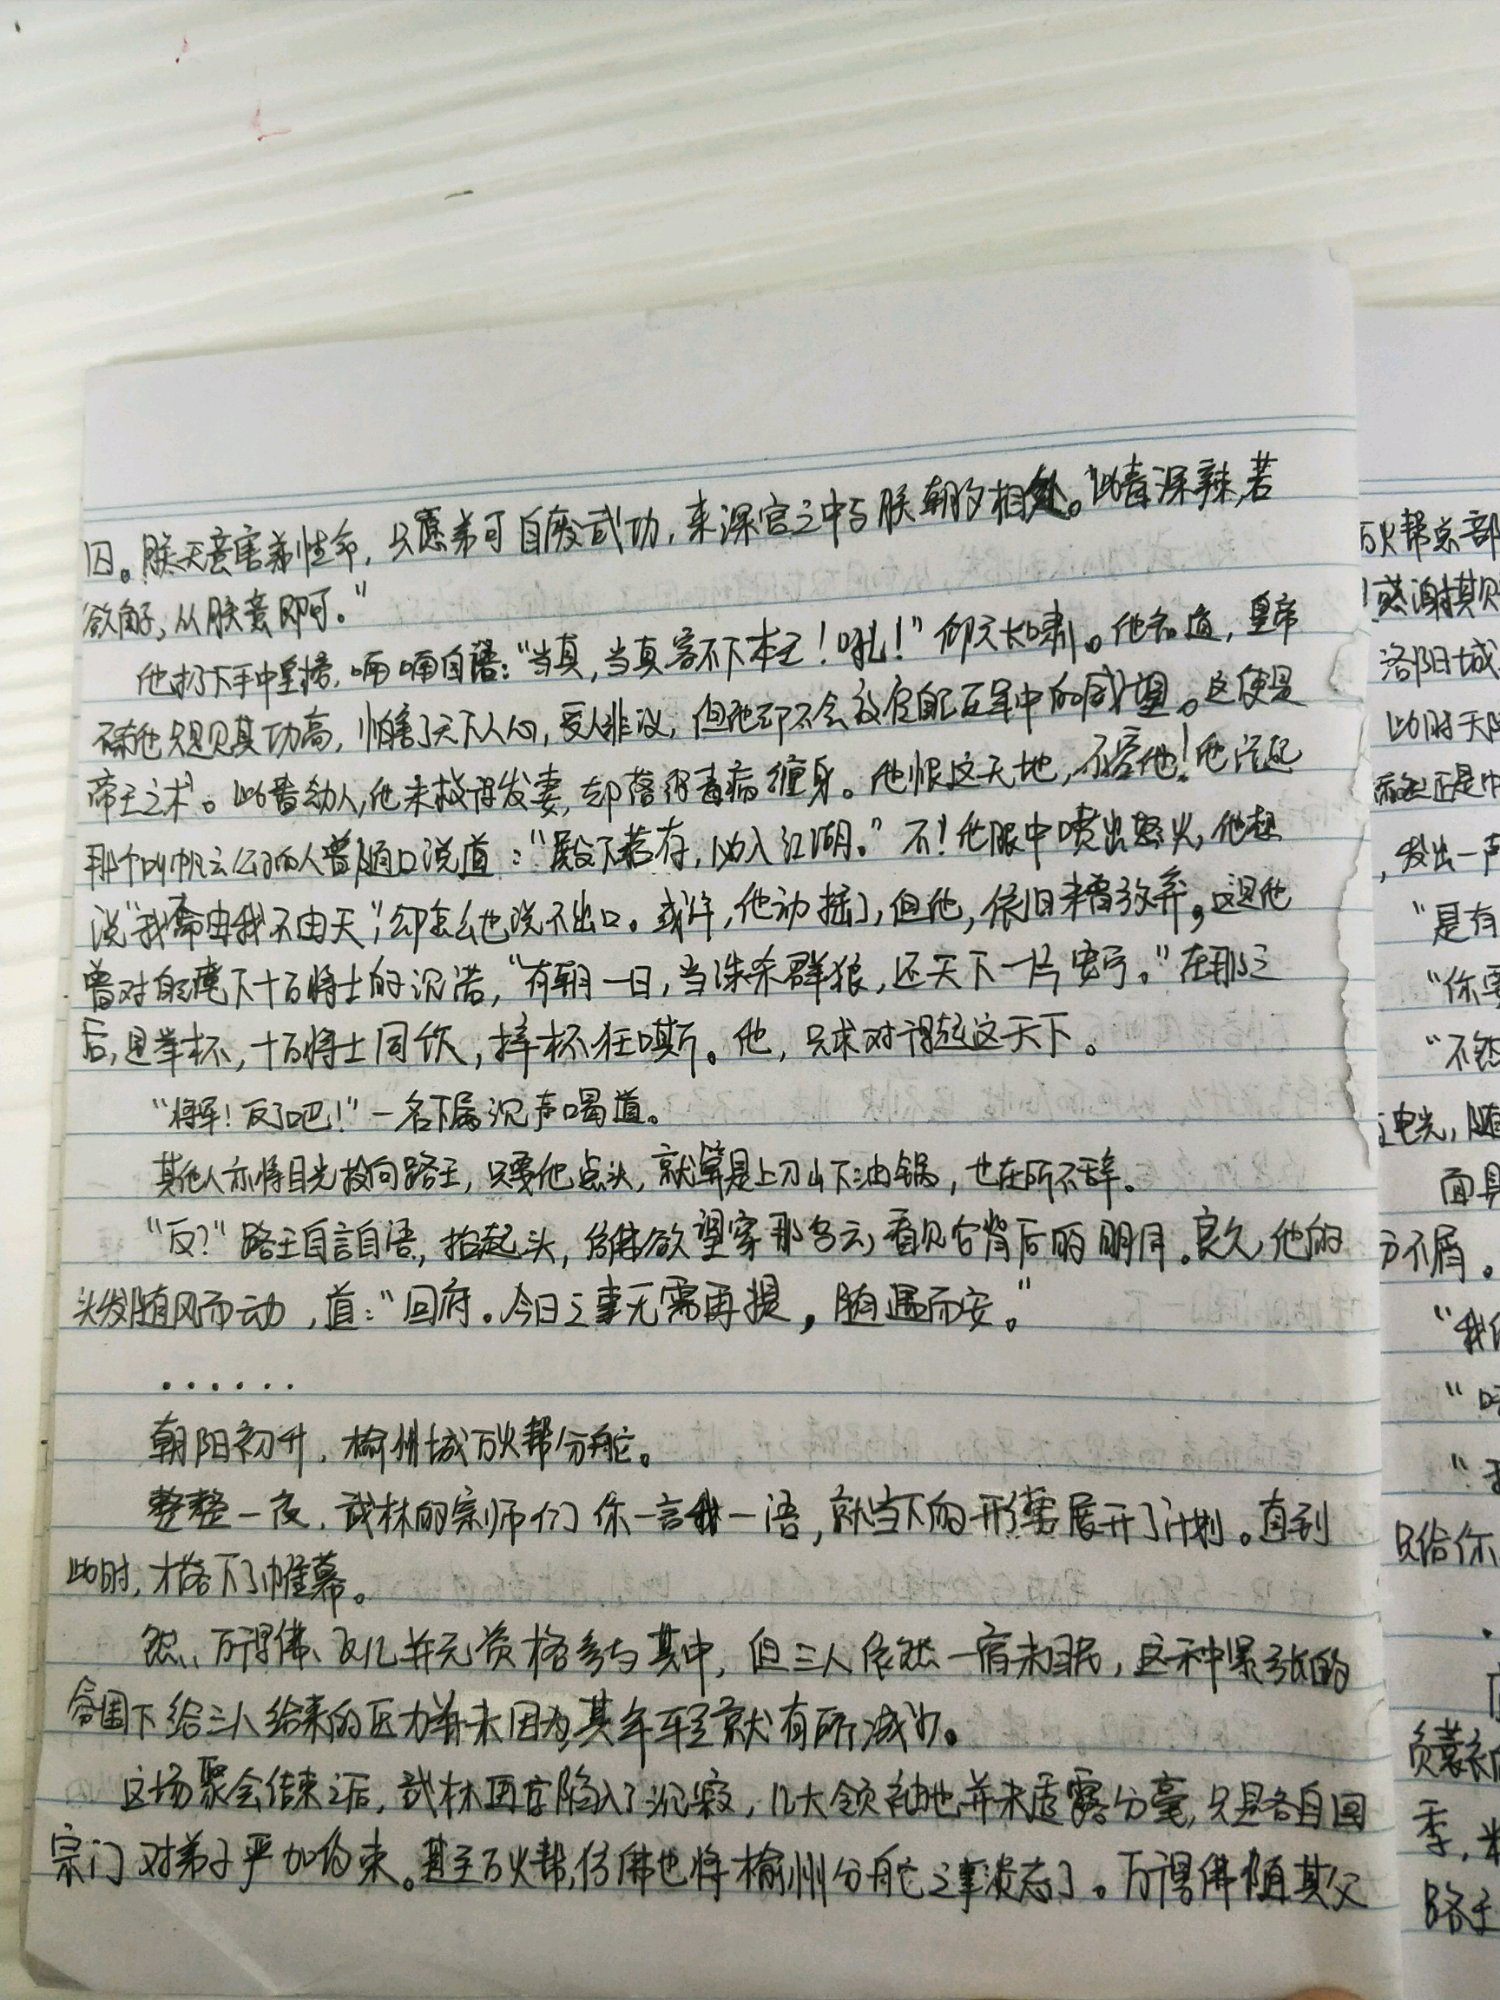 囚。朕无意害弟性命，只愿弟可自废武功，来深宫之中与朕朝夕相处。此毒深辣，若
欲解，从朕意即可。"
他扔下手中圣旨，喃喃自语："当真，当真容不下本王！吼！"仰天长啸。他知道，皇帝
功高，怕害了天下人心，受人非议，但他却不会放任自己在军中的威望。这便是
帝王之术。此番劫人，他未救得发妻，却落得毒病缠身。他恨这天地，不容他！他记起
那个叫帆云公子的人曾随口说道："殿下若存，必入江湖。"不！他眼中喷出怒火，他想
说"我命由我不由天"，却怎么也说不出口。或许，他动摇了，但他，依旧未曾放弃，这是他
曾对自己麾下十万将士的沉诺，"有朝一日，当诛杀群狼，还天下一片安宁。"在那之
后，是举杯，十万将士同饮，摔杯狂嘶。他，只求对得起这天下。
"将军！反了吧！"一名下属沉声喝道。
其他人亦将目光投向路王，只要他点头，就算是上刀山下油锅，也在所不辞。
"反？"路王自言自语，抬起头，仿佛欲望穿那乌云，看见它背后的明月。良久，他的
头发随风而动，道："回府。今日之事无需再提，随遇而安。"
......
朝阳初升，榆州城万火帮分舵。
整整一夜，武林的宗师们你一言我一语，就当下的形势展开了计划。直到
此时，才落下了帷幕。
万得佛、及几并无资格参与其中，但三人依然一宿未眠，这种紧张的
氛围下给三人给来的压力并未因为其年轻就有所减少。
这场聚会结束之后，武林再度陷入了沉寂，几大领袖也并未透露分毫，只是各自回
宗门对弟子严加约束。甚至万火帮，仿佛也将榆州分舵之事淡忘了。万得佛随其父
万火帮总部
！感谢其贝
洛阳城
此时天
还是
，发出一声
"是有
"你要
"不然
电光，随
面具
分不屑。
"我们
只给你
负蓑衣
季，
路王